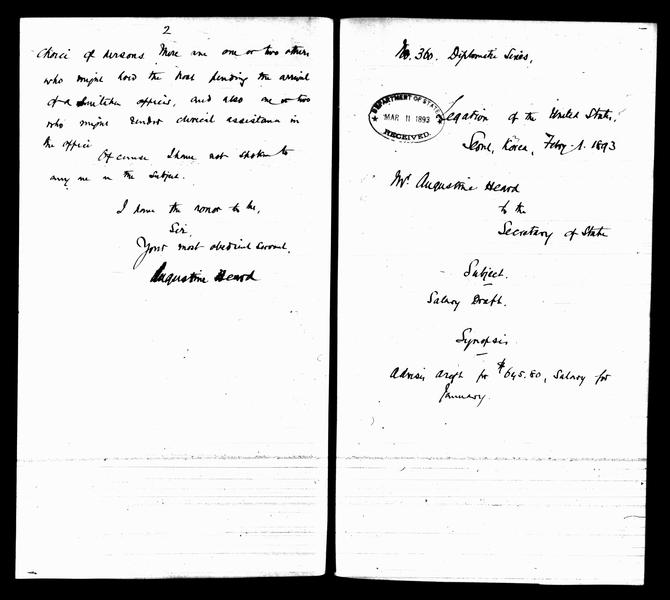 2
choice of persons. There are one or two others
who might hold the post pending the arrival
of a officer, and also one or two
who might render clerical assistance in
the office
Of course I have not spoken to
any one on the subject.
I have the honor to be,
Sir,
Your most obedient servant,
Augustine Heard
No. 360. Diplomatic Series,
DEPARTMENT OF STATE
MAR 11 1893
RECEIVED.
Legation of the United States,
Seoul, Korea, Feby. 1. 1893
Mr. Augustine Heard
to the
Secretary of State
Subject.
Salary Draft.
Synopsis
Advises draft for $645.80, Salary for
January.